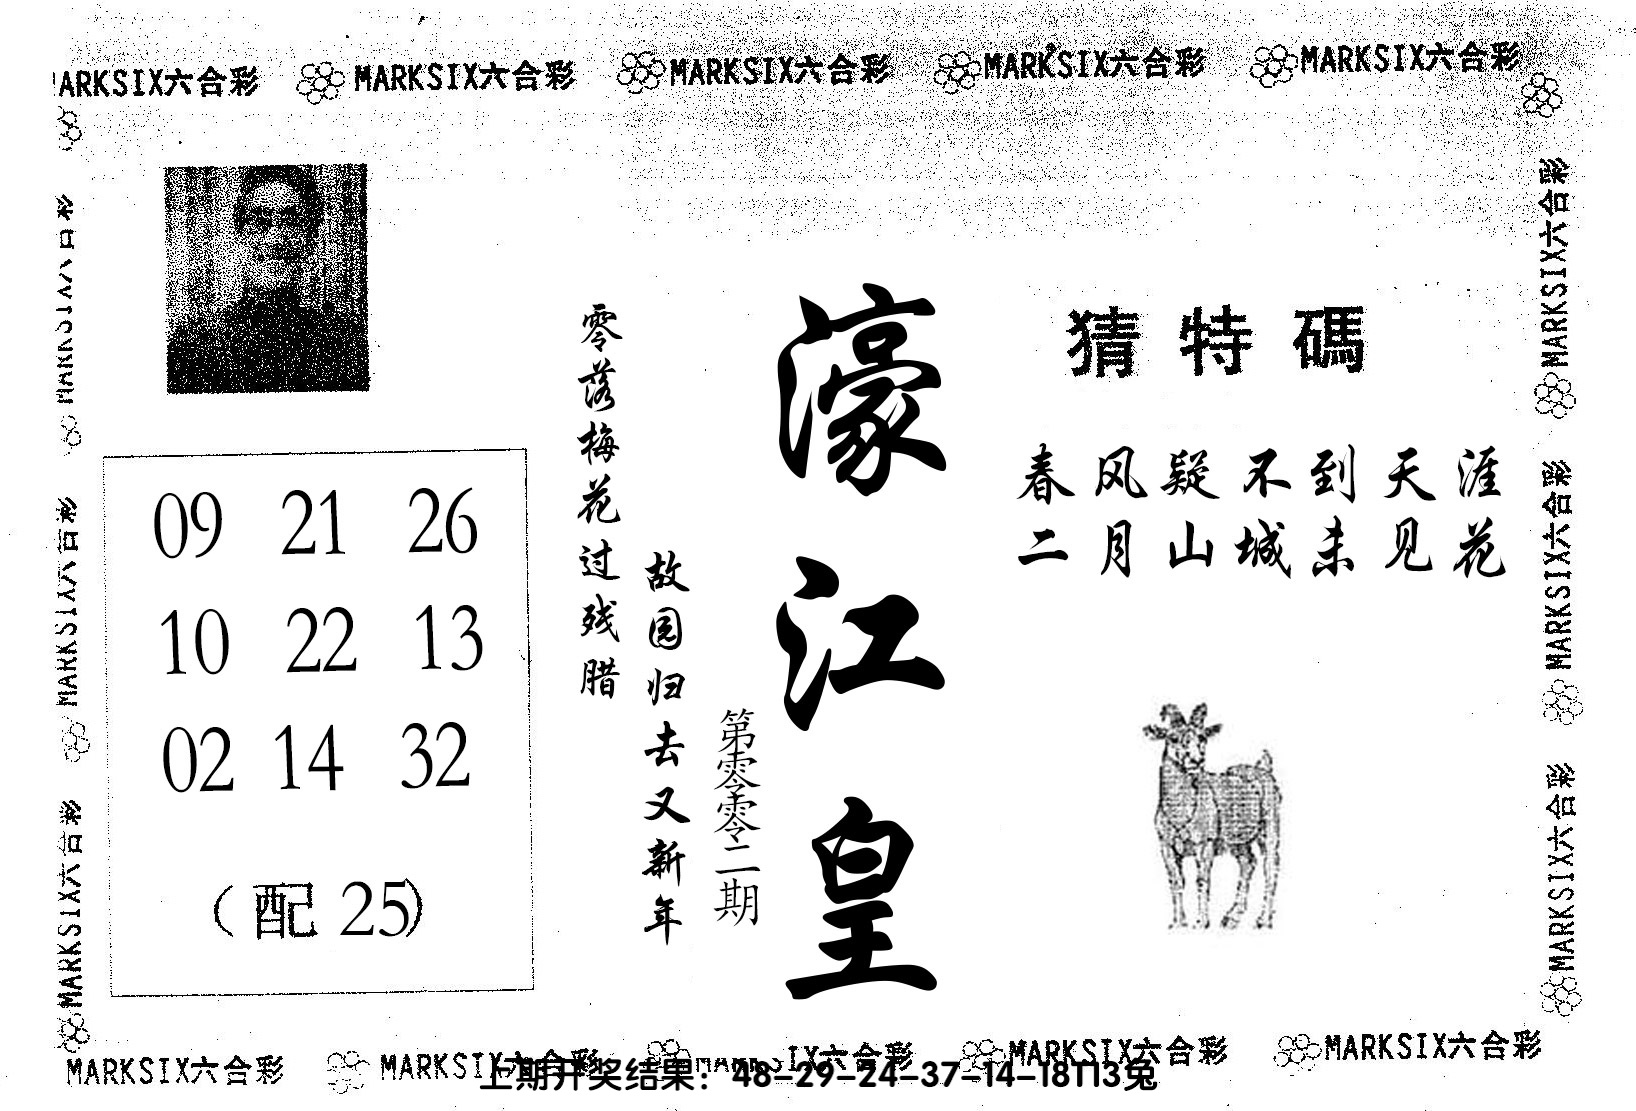 MARKSIX六合彩 MARKSIX六合彩 MARKSIX六合彩 MARKSIX六合彩 MARKSIX六合彩
猜特碼
春风疑不到天涯
二月山城未见花
濠江皇
第零零二期
故园归去又新年
零落梅花过残腊
09 21 26
10 22 13
02 14 32
（配 25）
MARKSIX六合彩
MARKSIX六合彩
MARKSIX六合彩
MARKSIX六合彩
MARKSIX六合彩
MARKSIX六合彩
MARKSIX六合彩 MARKSIX六合彩 MARKSIX六合彩 MARKSIX六合彩 MARKSIX六合彩
上期开奖结果：48-29-24-37-14-18T13兔